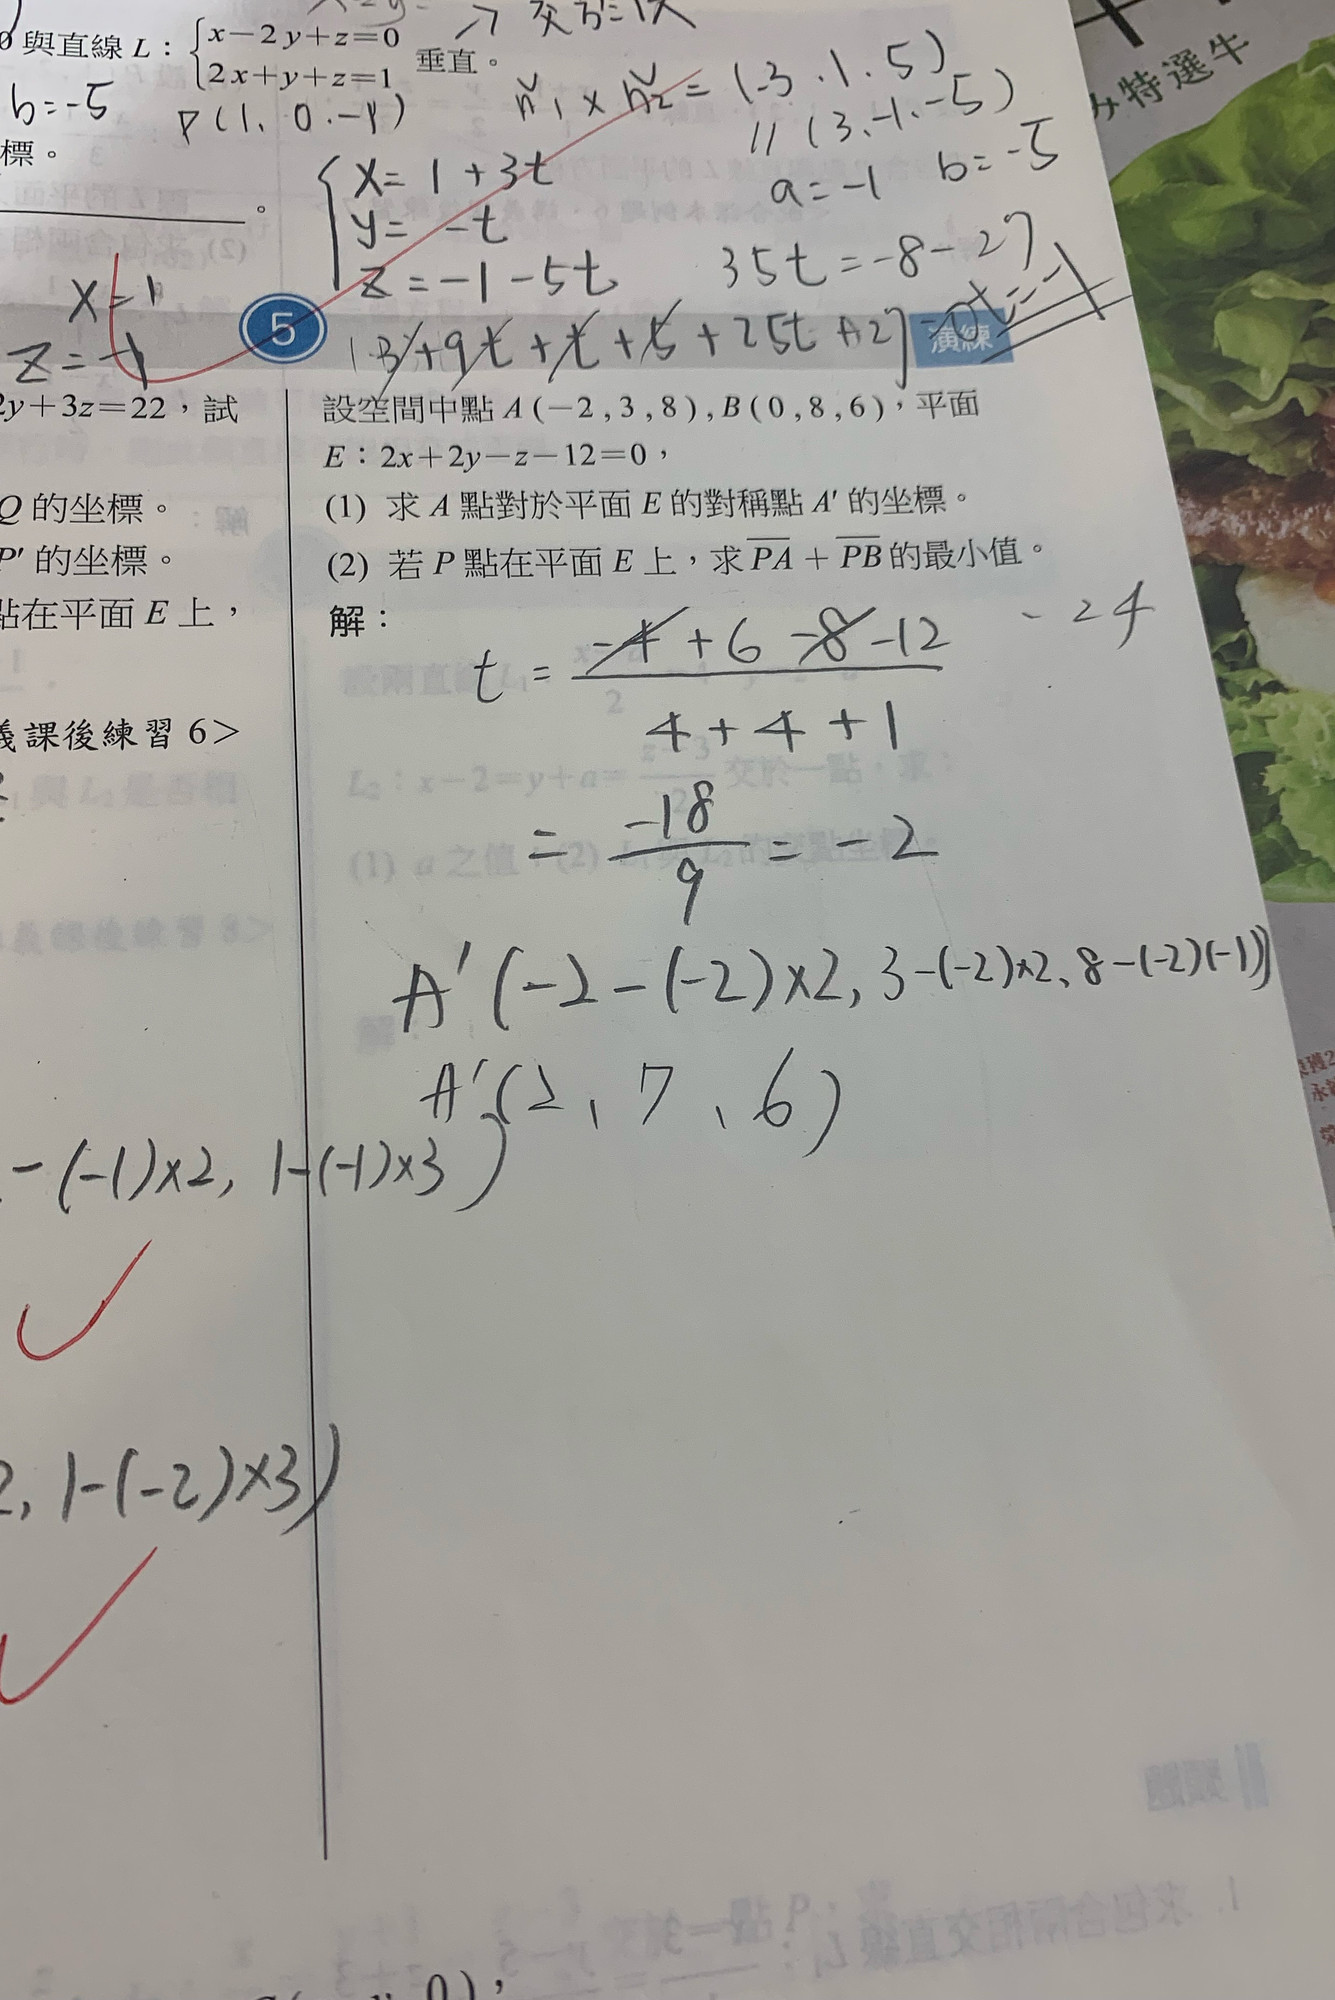 與直線 L：{x−2y+z=0
2x+y+z=1 垂直。
b=-5 P(1, 0, -1) n₁ × n₂ = (-3, 1, 5)
// (3, -1, -5)
標。
a=-1 b=-5
x= 1+3t
y= -t
z=-1-5t 35t=-8-27
x=1
z=-1
5 演練
2y+3z=22，試
Q 的坐標。
P′ 的坐標。
點在平面 E 上，
義課後練習 6>
設空間中點 A(−2,3,8),B(0,8,6)，平面
E：2x+2y−z−12=0，
(1) 求 A 點對於平面 E 的對稱點 A′ 的坐標。
(2) 若 P 點在平面 E 上，求 PA + PB 的最小值。
解：
t = -4+6-8-12 -24
4+4+1
= -18/9 = -2
A'(-2-(-2)×2, 3-(-2)×2, 8-(-2)(-1))
A'(2, 7, 6)
-(-1)×2, 1-(-1)×3)
2, 1-(-2)×3)
特選牛